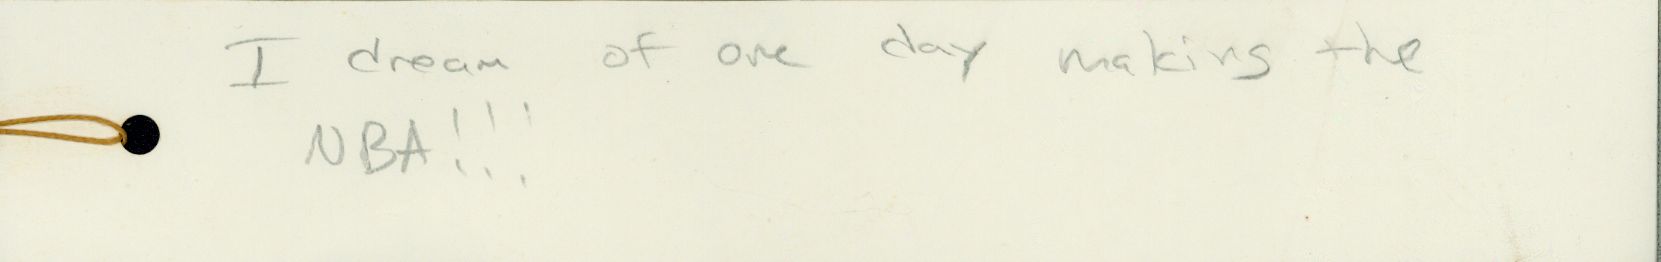 I dream of one day making the
NBA!!!